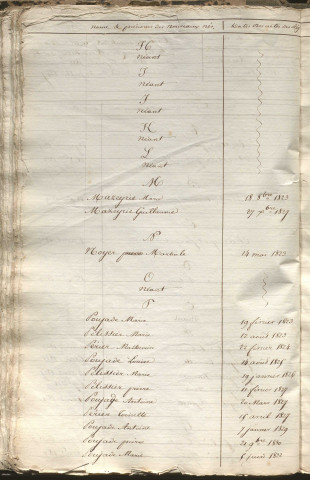 Noms et prénoms des
H
néant
I
néant
J
néant
K
néant
L
néant
M
Mazeyrie Marie 18 8bre 1823
Mazeyrie Guillaume 27 7bre 1827
N
Noyer Martiale 14 mai 1823
O
néant
P
Poujade Marie 10 février 1823
Pélissier Marie 12 août 1823
Périer 22 février 1824
Poujade Louise 14 août 1825
Pélissier Marie 19 janvier 1826
Pélissier pierre 11 février 1827
Poujade Antoine 20 Mars 1827
Périer 15 avril 1827
Poujade Antoine 7 janvier 1829
Poujade pierre 20 9bre 1830
Poujade Marie 6